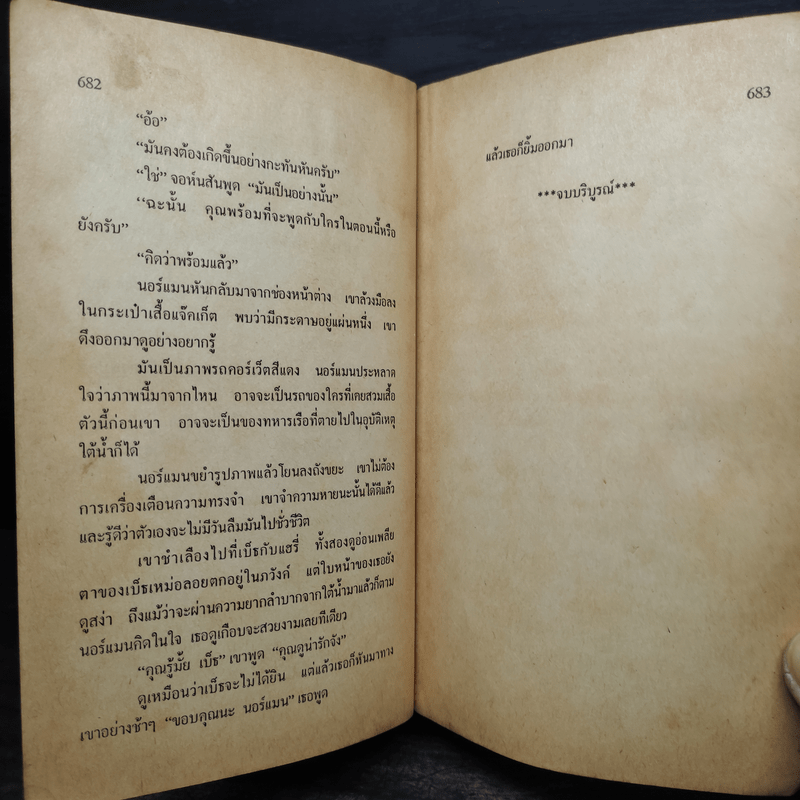 682
“อ้อ”
“มันคงต้องเกิดขึ้นอย่างกะทันหันครับ”
“ใช่” จอห์นสันพูด “มันเป็นอย่างนั้น”
“ฉะนั้น คุณพร้อมที่จะพูดกับใครในตอนนี้หรือ
ยังครับ”
“คิดว่าพร้อมแล้ว”
นอร์แมนหันกลับมาจากช่องหน้าต่าง เขาล้วงมือลง
ในกระเป๋าเสื้อแจ๊คเก็ต พบว่ามีกระดาษอยู่แผ่นหนึ่ง เขา
ดึงออกมาดูอย่างอยากรู้
มันเป็นภาพรถคอร์เว็ตสีแดง นอร์แมนประหลาด
ใจว่าภาพนี้มาจากไหน อาจจะเป็นรถของใครที่เคยสวมเสื้อ
ตัวนี้ก่อนเขา อาจจะเป็นของทหารเรือที่ตายไปในอุบัติเหตุ
ใต้น้ำก็ได้
นอร์แมนขยำรูปภาพแล้วโยนลงถังขยะ เขาไม่ต้อง
การเครื่องเตือนความทรงจำ เขาจำความหายนะนั้นได้ดีแล้ว
และรู้ดีว่าตัวเองจะไม่มีวันลืมมันไปชั่วชีวิต
เขาชำเลืองไปที่เบ็ธกับแฮรี่ ทั้งสองดูอ่อนเพลีย
ตาของเบ็ธเหม่อลอยตกอยู่ในภวังค์ แต่ใบหน้าของเธอยัง
ดูสง่า ถึงแม้ว่าจะผ่านความยากลำบากจากใต้น้ำมาแล้วก็ตาม
นอร์แมนคิดในใจ เธอดูเกือบจะสวยงามเลยทีเดียว
“คุณรู้มั้ย เบ็ธ” เขาพูด “คุณดูน่ารักจัง”
ดูเหมือนว่าเบ็ธจะไม่ได้ยิน แต่แล้วเธอก็หันมาทาง
เขาอย่างช้าๆ “ขอบคุณนะ นอร์แมน” เธอพูด
683
แล้วเธอก็ยิ้มออกมา
***จบบริบูรณ์***